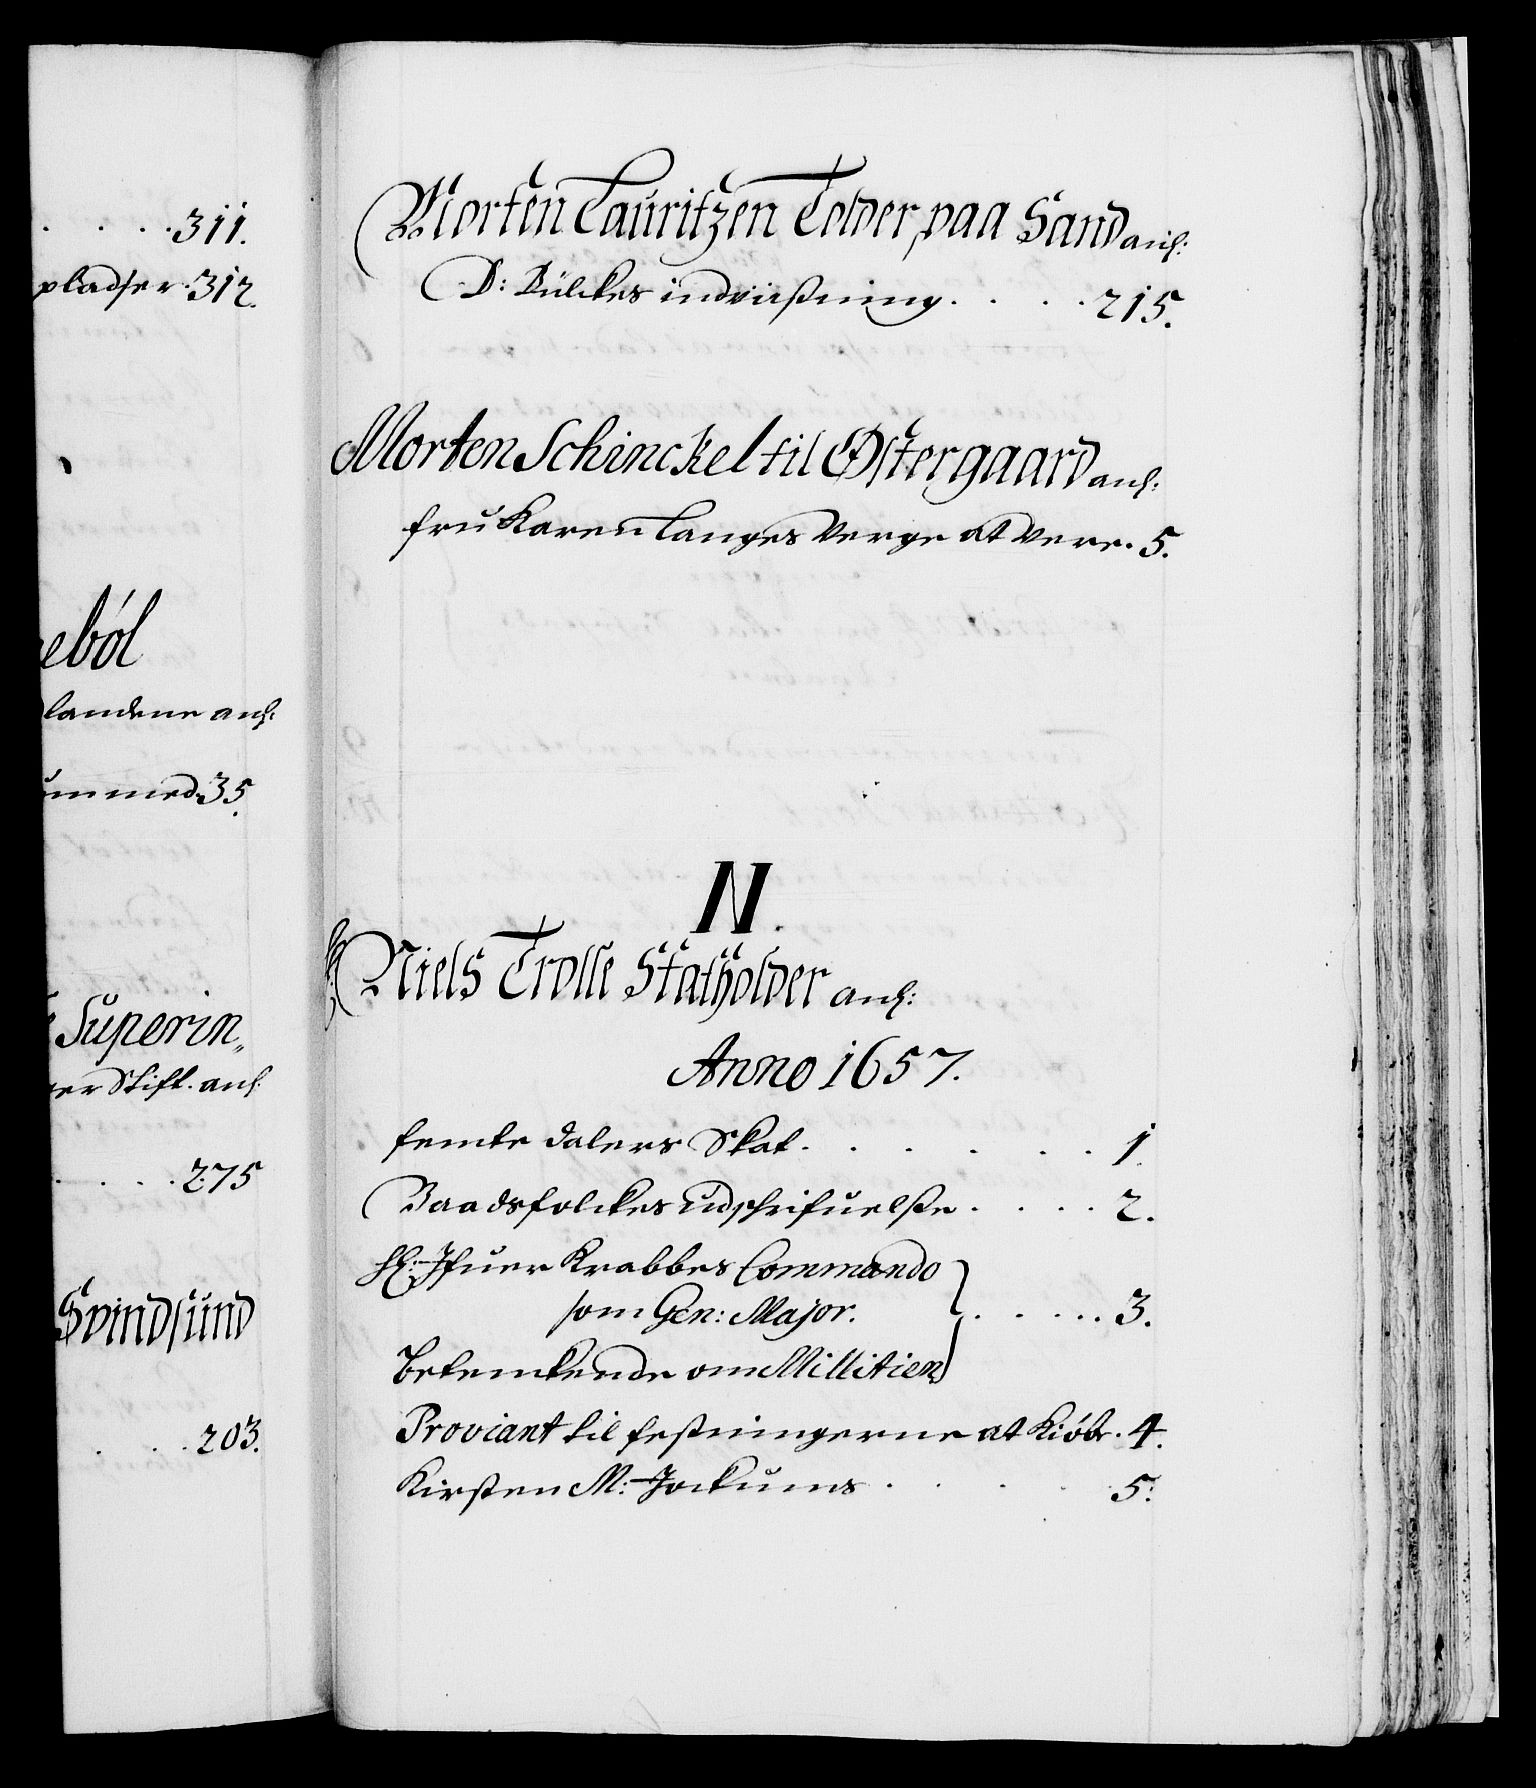 311.
pladser 312.
eból
landene anl:
um med 35.
Superin„
er Stift. anl:
275
Svindsund
203.
Morten Lauritzen Tolder paa Sand anl:
D: Bülckes indviisning . . . . 215.
Morten Schinckel til Østergaard anl:
fru Karen Langes Verge at Vere. 5.
N.
Niels Trolle Statholder anl:
Anno 1657.
femte dalers Skat. . . . . . 1.
Baadsfolckes udschrifuelse . . . . 2.
H: Ifuer Krabbes Commando
som Gen: Major. . . . . . 3.
betenkende om Millitien
Proviant til festningerne at Kiöbe. 4.
Kirsten M: Jockums . . . . 5.